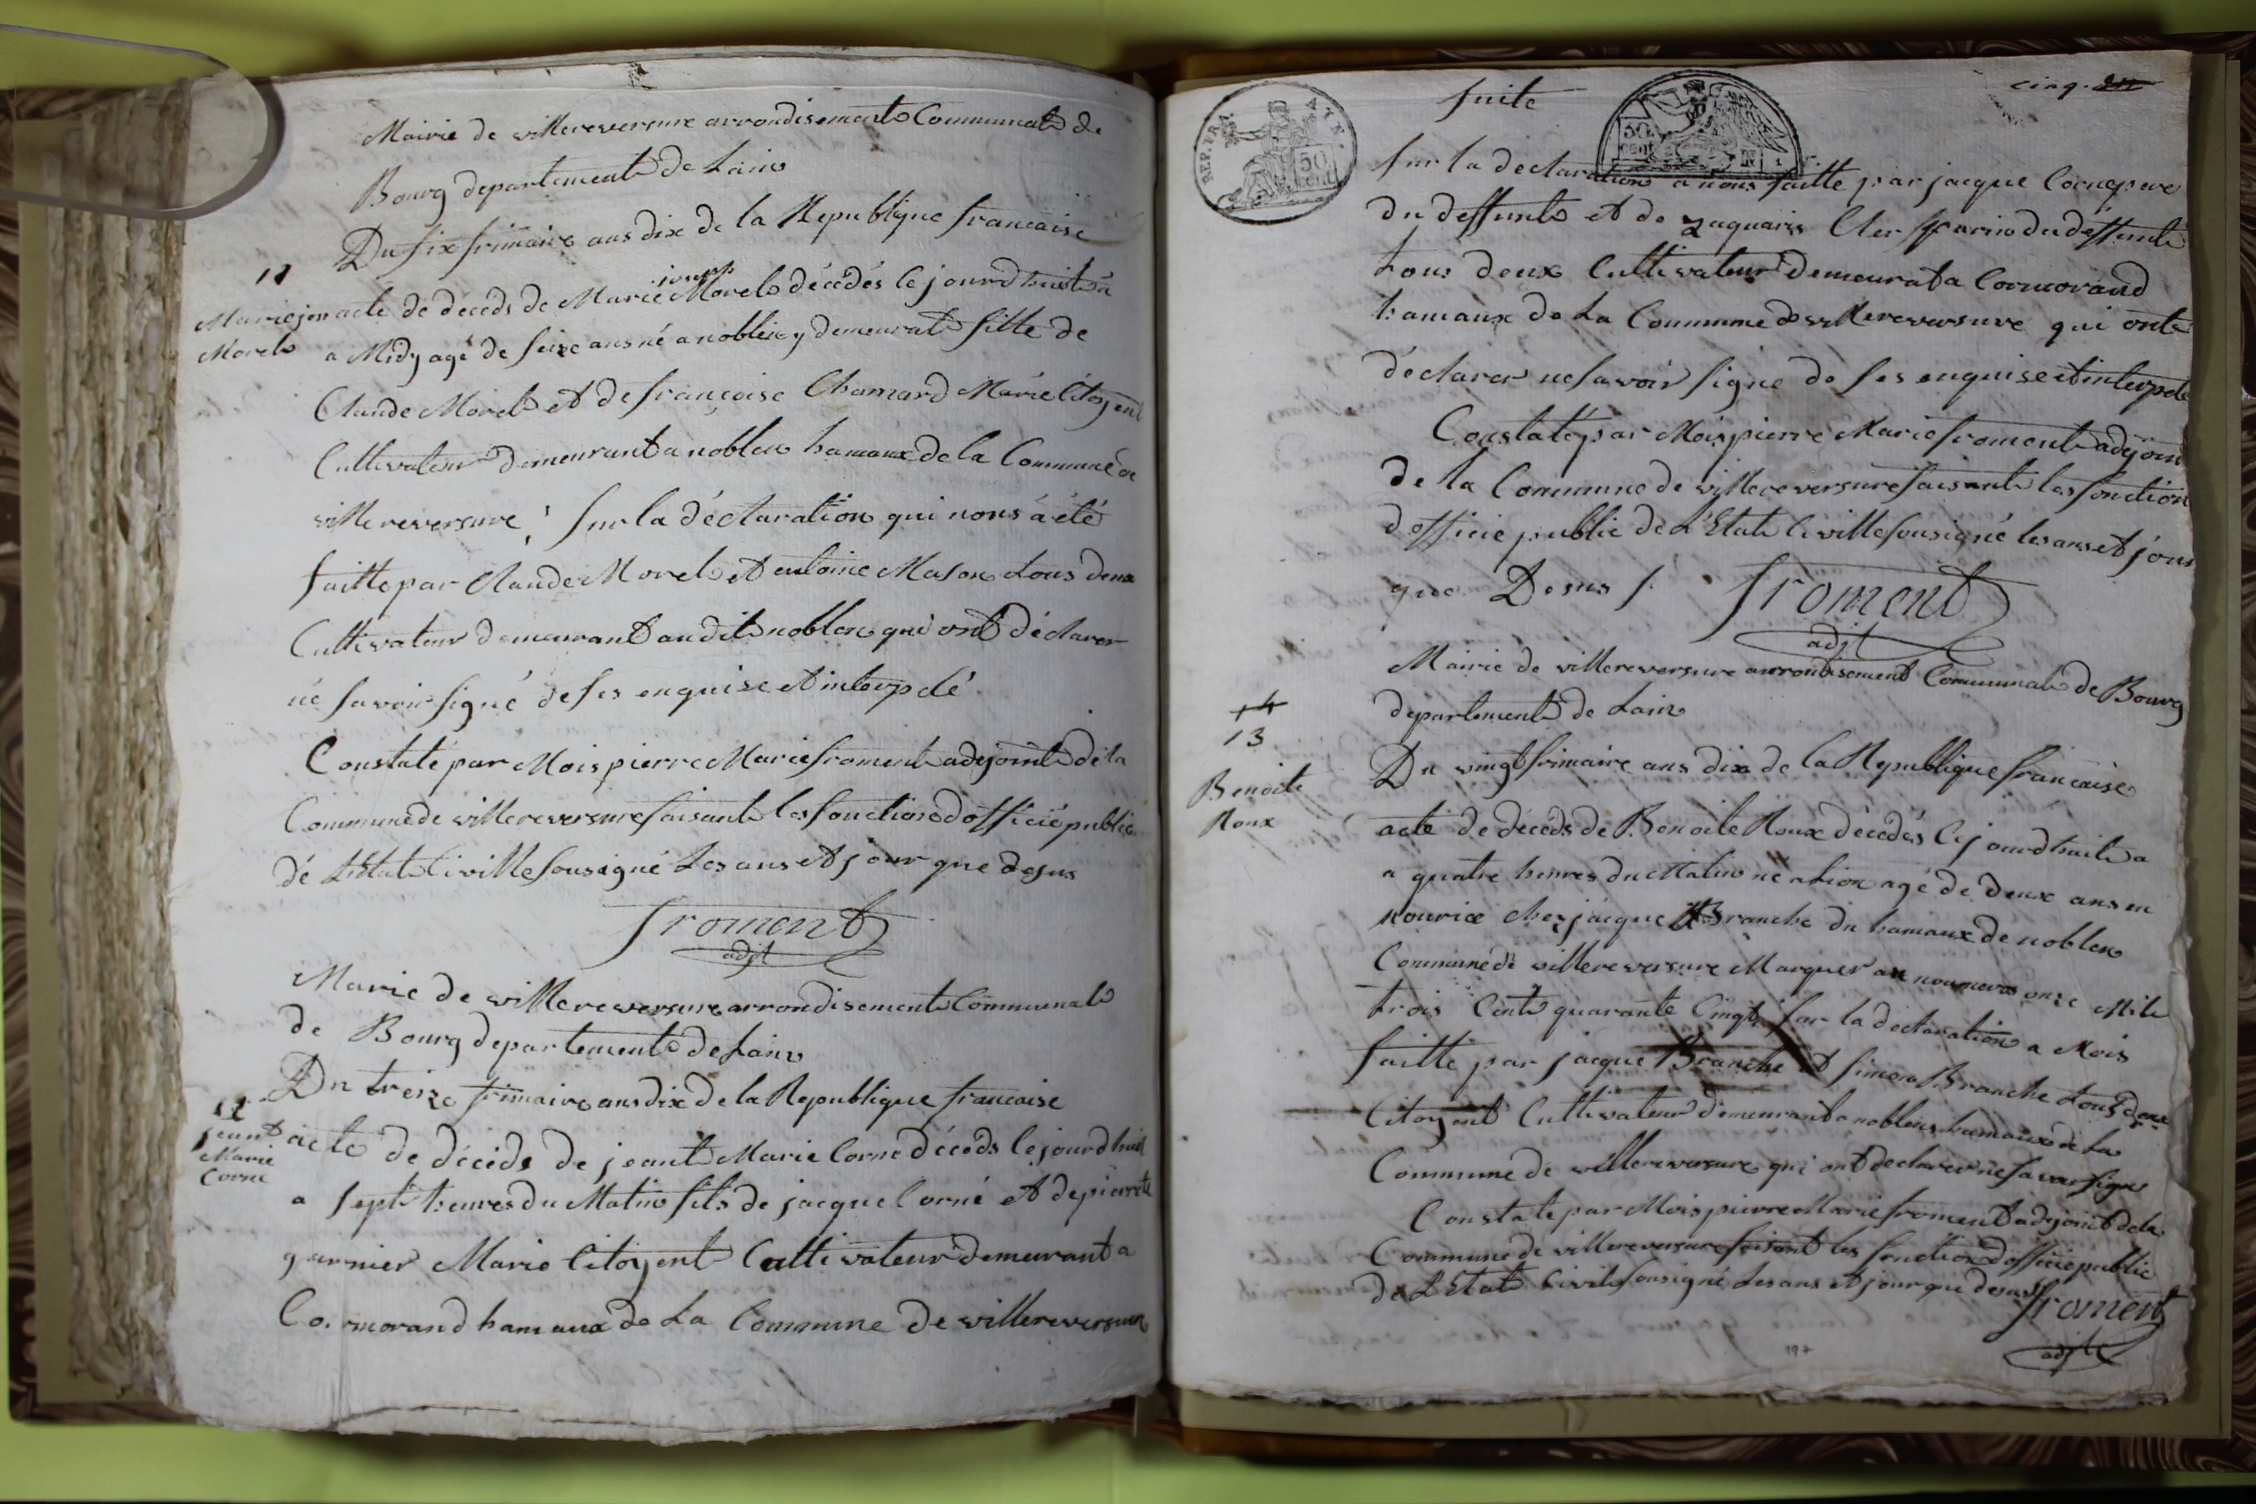 Mairie de villereversure arrondisement Communal de
Bourg departement de Lain
Du six frimaire ans dix de la Republique francaise
11
Marie jon
Morel
joseph
acte de décéds de Marie Morel décédés le jourdhuit a
a Midy agé de seize ans né a noblen y demeurat fille de
Claude Morel et de françoise Chamard Marié Citoyent
Cultivateur demeurant a noblen hamaux de la Commune de
villereversure; sur la déclaration qui nous á été
faitte par Claude Morel et antoine Mason tous deux
Cultivateur demeurant audit noblen qui ont déclarer
né savoir signé de ses enquise et interpelé
Constaté par Mois pierre Marie froment adejoint de la
Commune de villereversure faisant les fonction dofficié public
dé LEtat Civille sousigné Les ans et jour que desus
froment
adjt
Marie de villereversure arrondisement Communal
de Bourg departement de Lain
Du treize frimaire ans dix de la Republique francaise
12
jeant
Marie
Corne
acte de décéds de jeant Marie Corne décéds lejourdhuit
a sept heures du Matin fils de jacque Corné et de pierrete
garnier Marie Citoyent Cultivateur demeurant a
Cormorand hamaux de La Commune de villereversure
suite
cinq.
REP. FRA.
50
50
cent
sur la déclaration a nous faitte par jacque Corne pere
du deffunt et de zaquarie Cler parin du déffunt
tous deux Cultivateur demeurat a Cormorand
hamaux de La Commune de villereversure qui ont
déclarer ne savoir signe de ses enquise et interpelé
Constaté par Mois pierre Marie froment adejoint
de la Commune de villereversure faisant les fonction
dofficié public de LEtat Civille sousigné les ans et jour
que Desus /.
froment
adjt
Mairie de villereversure arrondisement Communal de Bourg
departement de Lain
14
13
Benoite
Roux
Du vingt frimaire ans dix de la Republique francaise
acte de décéds de Benoite Roux décédés lejourdhuit a
a quatre heures du Matin né a Lion agé de deux ans en
nourice chez jacque Branche du hamaux de noblen
Commune de villereversure Marquer au noumeros onze Mile
trois Cent quarante Cinq sur la declaration a Mois
faitte par jacque Branche et simon Branche tous deux
Citoyent Cultivateur demeurant a noblens hamaux de La
Commune de villereversure qui ont declarer ne savoir signe
Constaté par Mois pierre Marie froment adejoint de la
Commune de villereversure faisant les fonction dofficié public
de LEtat Civile sousigné Les ans et jour que desus
froment
adjt
197